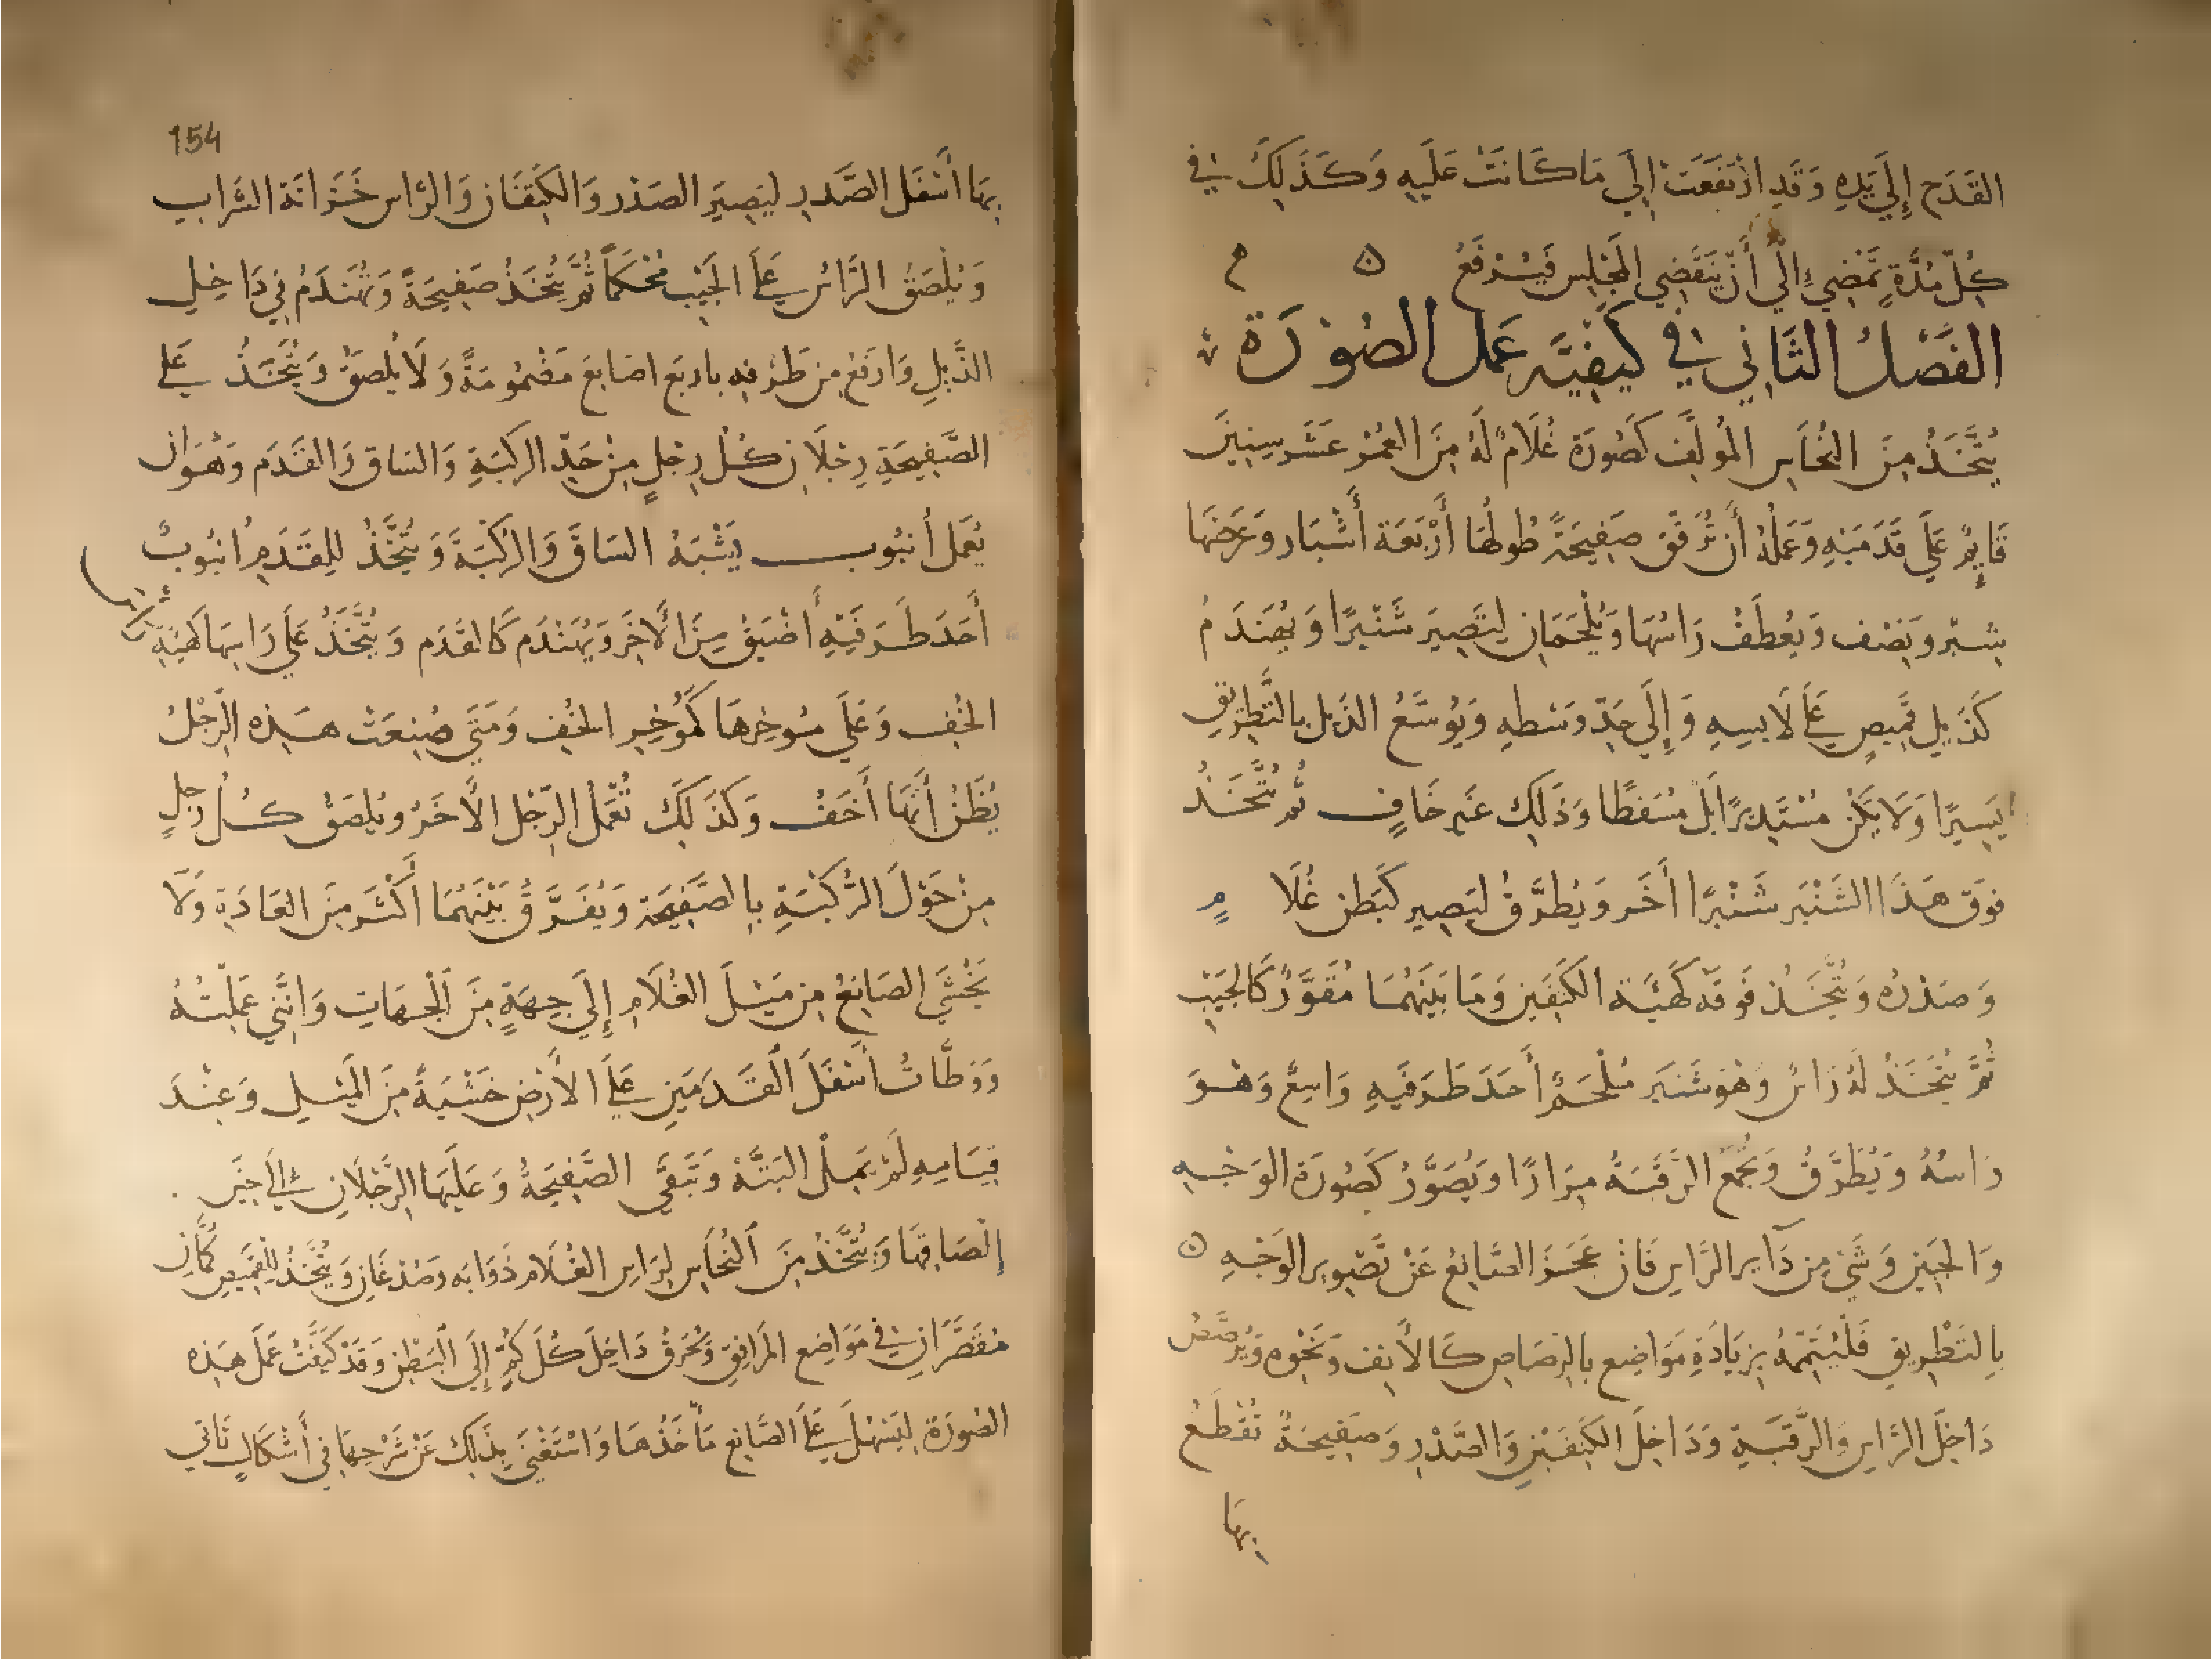 القَدَح إِلَى يَدِهِ وَقَدِ ارْتَفَعَتْ إِلَى مَا كَانَتْ عَلَيهِ وَكَذَلِكَ فِي
كُلّ مُدَّةٍ تَمْضِي إِلَى أَنْ يَنقَضِي المَجْلِس فَيُرْفَعُ ٥ م
الفَصْلُ الثَّانِي فِي كَيْفِيَّة عَمَل الصُوْرَة
يُتَّخَذُ مِنَ النُحَاسِ المُولَّف كَصُورَة غُلَامٍ لَهُ مِنَ العُمُر عَشَر سِنِينَ
قَايِمٌ عَلَى قَدَمَيْهِ وَعَمَلُهُ أَنْ تُرَقَّقَ صَفِيحَةً طُولُهَا أَرْبَعَة أَشْبَار وَعَرَضهَا
شِبْر وَنِصْف وَيُعْطَفُ رَاسُهَا وَيُلْحَمَانِ لِتَصِيرَ شَنْبَرًا وَيُهَنْدَمُ
كَذَيلِ قَمِيصٍ عَلَى لَابِسِهِ وَإِلَى حَدّ وَسْطِهِ وَيُوسَّعُ الذَيل بِالتَّطرِيقِ
يَسِيرًا وَلَا يَكُنْ مُسْتَدِيرًا بَلْ مُسَفَطًا وَذَلِكَ غَير خَافٍ ثُمَّ يُتَّخَذُ
فَوقَ هَذَا الشَنْبَر شَنْبَرًا أَخَر وَيُطَرَّقُ لِيَصِير كَبَطن غُلَامٍ
وَصَدْرُه وَيُتَّخَذ فَوقَه كَهَيْئَة الكَتِفَين وَمَا بَيْنَهُمَا مُقَوَّرٌ كَالجَيْبِ
ثُمَّ يُتَّخَذُ لَهُ رَاسٌ وَهُوَ شَنبَر مُلْحَمٌ أَحَدَ طَرَفَيهِ وَاسِعٌ وَهُوَ
رَاسُهُ وَيُطَرَّقُ وَيُجْمَعُ الرَّقَبَةُ مِرَارًا وَيُصَوَّرُ كَصُورَة الوَجْهِ
وَالجَبِين وَشَيْ مِن دَايِر الرَّاسِ فَان عَجَزَ الصَّانِعُ عَنْ تَصْوِير الوَجْهِ ٥
بِالتَطْرِيقِ فَلْيُتَمِّمْهُ بِزِيَادَةِ مَوَاضِع بِالرَصَاصِ كَالأَنِف وَنَحْوِهِ وَيُرَصَّصُ
دَاخِلَ الرَّاسِ وَالرَّقَبَةِ وَدَاخِلَ الكَتِفَيْنِ وَالصَّدْرِ وَصَفِيحَةٌ تُقْطَعُ
بِهَا
154
بِهَا أَسْفَل الصَّدرِ لِيَصِيَر الصَدْر وَالكَتِفَان وَالرَّاس خَزَانَة الشَراب
وَيُلْصَقُ الرَّاسُ عَلَى الجَيْبِ مُحْكَمًا ثُمَّ يُتَّخَذُ صَفِيحَةً وَتُهَنْدَمُ فِي دَاخِلِ
الذَّيلِ وَارْفَعْ مِن طَرْفِهِ باربَع اصَابِعَ مَضْمُومَةً وَلَا يُلْصَقُ وَيُتَّخَذُ عَلَى
الصَّفِيحَةِ رِجْلَانِ كُلُّ رِجْلٍ مِنْ حَدِّ الرّكْبَةِ وَالسَاق وَالقَدَم وَهُوَ ان
يُعْمَل أُنبُوب يَشْبَهُ السَاقَ وَالرُكْبَةَ وَيُتَّخَذُ لِلقَدَمِ أُنبُوبٌ
أَحَدَ طَرَفَيْهِ أَضْيَقُ مِنَ الآخَر وَيُهَنْدَم كَالقَدَم وَيُتَّخَذُ عَلَى رَاسِهَا كَهَيْئَةِ
الخُف وَعَلَى مُوخِرهَا كَمُوخِرِ الخُف وَمَتَى صُنِعَتْ هَذِهِ الرِّجْلُ
يُظَنُّ أَنَّهَا أَخَفُّ وَكَذَلِكَ تُعْمَلُ الرِّجْل الأَخَرُ وَيُلصَقُ كُلُّ رِجلٍ
مِنْ حَوْلَ الرُّكْبَةِ بِالصَّفِيحَة وَيُفَرَّقُ بَيْنَهُمَا أَكْثَر مِنَ العَادَةِ وَلَا
يَخْشَي الصَانِعُ مِن مَيْلَ الغُلَامِ إِلَى جِهَةٍ مِنَ الجِهَاتِ وَانَّنِي عَمِلْتُهُ
وَوَطَّاتُ أَسْفَلَ القَدَمَينِ عَلَى الأَرْضِ خَشْيَةً مِنَ المَيْلِ وَعِنْدَ
قِيَامِهِ لَمْ يَمِلْ البَتَّةُ وَتَبْقَى الصَّفِيحَةُ وَعَلَيْهَا الرِّجْلَانِ إِلَى حِينَ
إِلْصَاقِهَا وَيُتَّخَذُ مِنَ النُحَاسِ لِرَاسِ الغُلَام ذَوَابَه وَصدْغَانِ وَيُتَّخَذُ لِلْقَمِيصِ كُمَّانِ
مُقَصَّرَانِ فِي مَوَاضِع المَرَافِق وَيُخْرَقُ دَاخِلَ كُلّ كُمٍّ إِلَى البَطْنِ وَقَدْ كَيَّفْتُ عَمَلَ هَذِهِ
الصُورَة لِيَسْهُلَ عَلَى الصَّانِع مَأْخَذُهَا وَاسْتَغْنَي بِذَلِكَ عَنْ شَرْحِهَا فِي أَشْكَالٍ تَاتِي